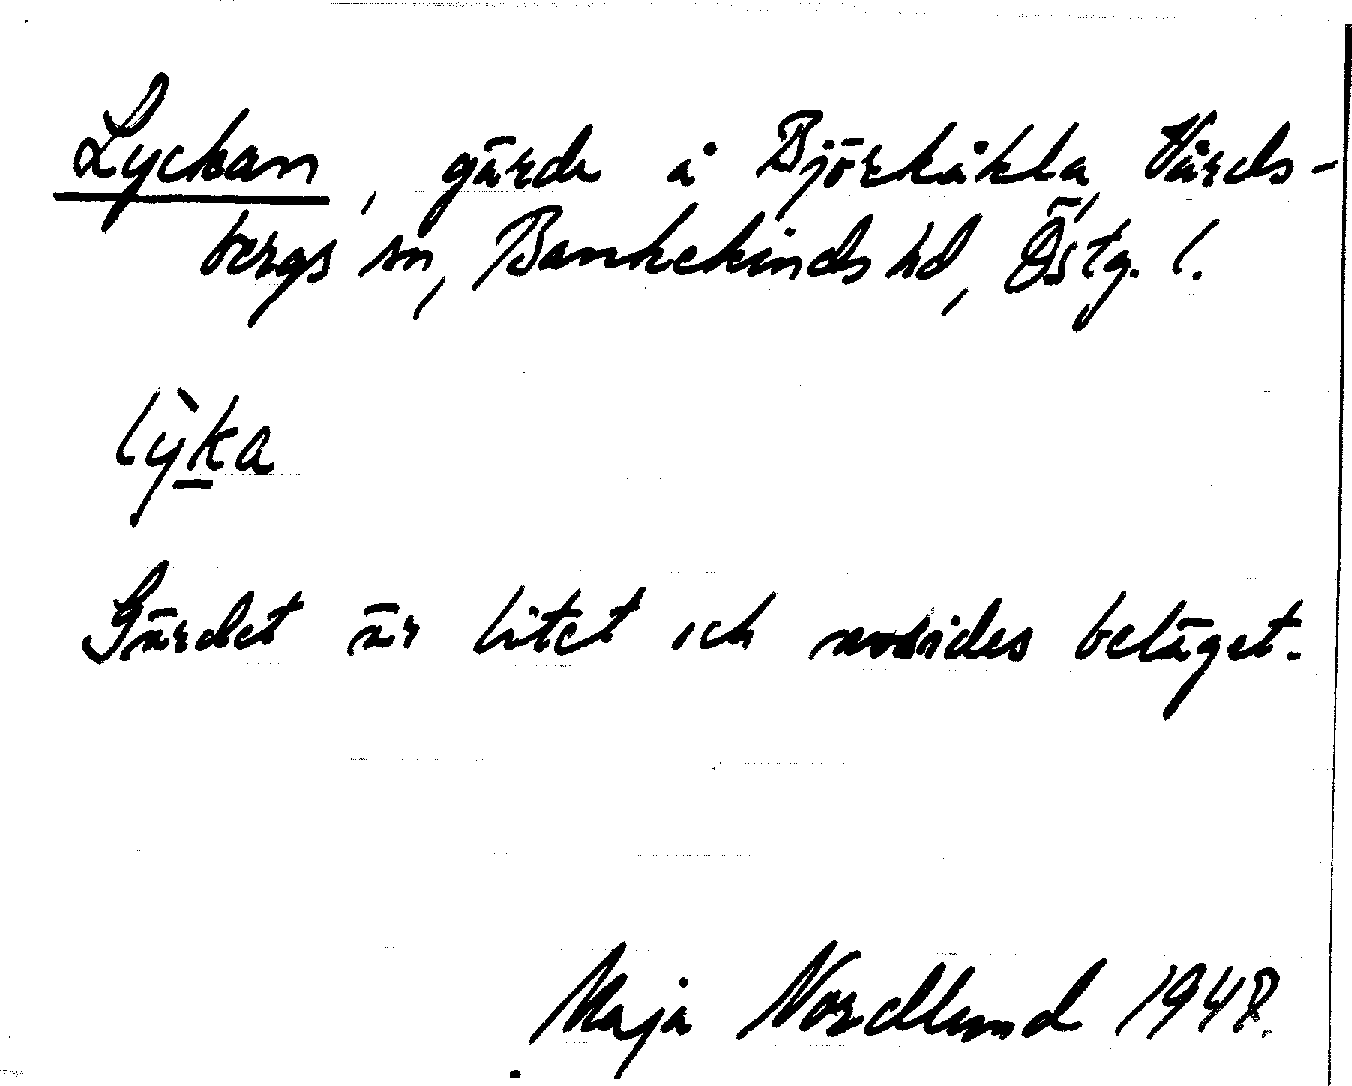 Lyckan, gärde å Björkåkla, Vårds-
bergs sn, Bankekinds hd, Östg. l.
lỳka
Gärdet är litet och avsides beläget.
Maja Nordlund 1948.